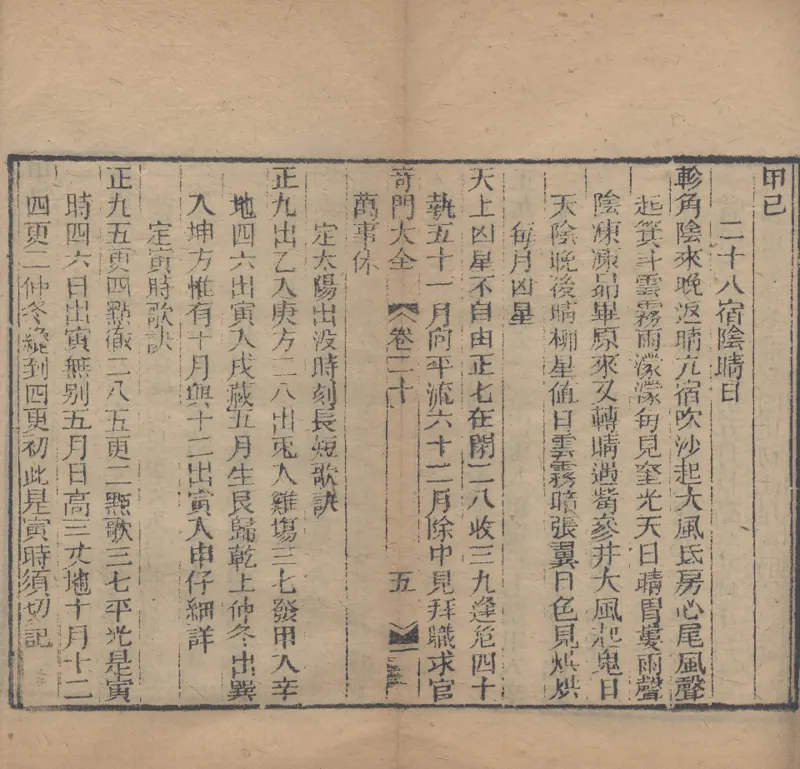 甲己
二十八宿陰晴日
軫角陰來晚返晴亢宿吹沙起大風氐房心尾風聲
起箕斗雲霧雨濛濛每見奎光天日晴胃婁雨聲
陰凍凍昴畢原來又轉晴遇觜參井大風起鬼日
天陰晚後晴柳星值日雲霧暗張翼日色見烘烘
每月凶星
天上凶星不自由正七在閉二八收三九逢危四十
執五十一月向平流六十二月除中見拜職求官
奇門大全 卷二十 五
萬事休
定太陽出没時刻長短歌訣
正九出乙入庚方二八出兎入雞塲三七發甲入辛
地四六出寅入戌藏五月生艮歸乾上仲冬出巽
入坤方惟有十月與十二出寅入申仔細詳
定寅時歌訣
正九五更四點徹二八五更二點歌三七平光是寅
時四六日出寅無别五月日高三丈地十月十二
四更二仲冬纔到四更初此是寅時須切記